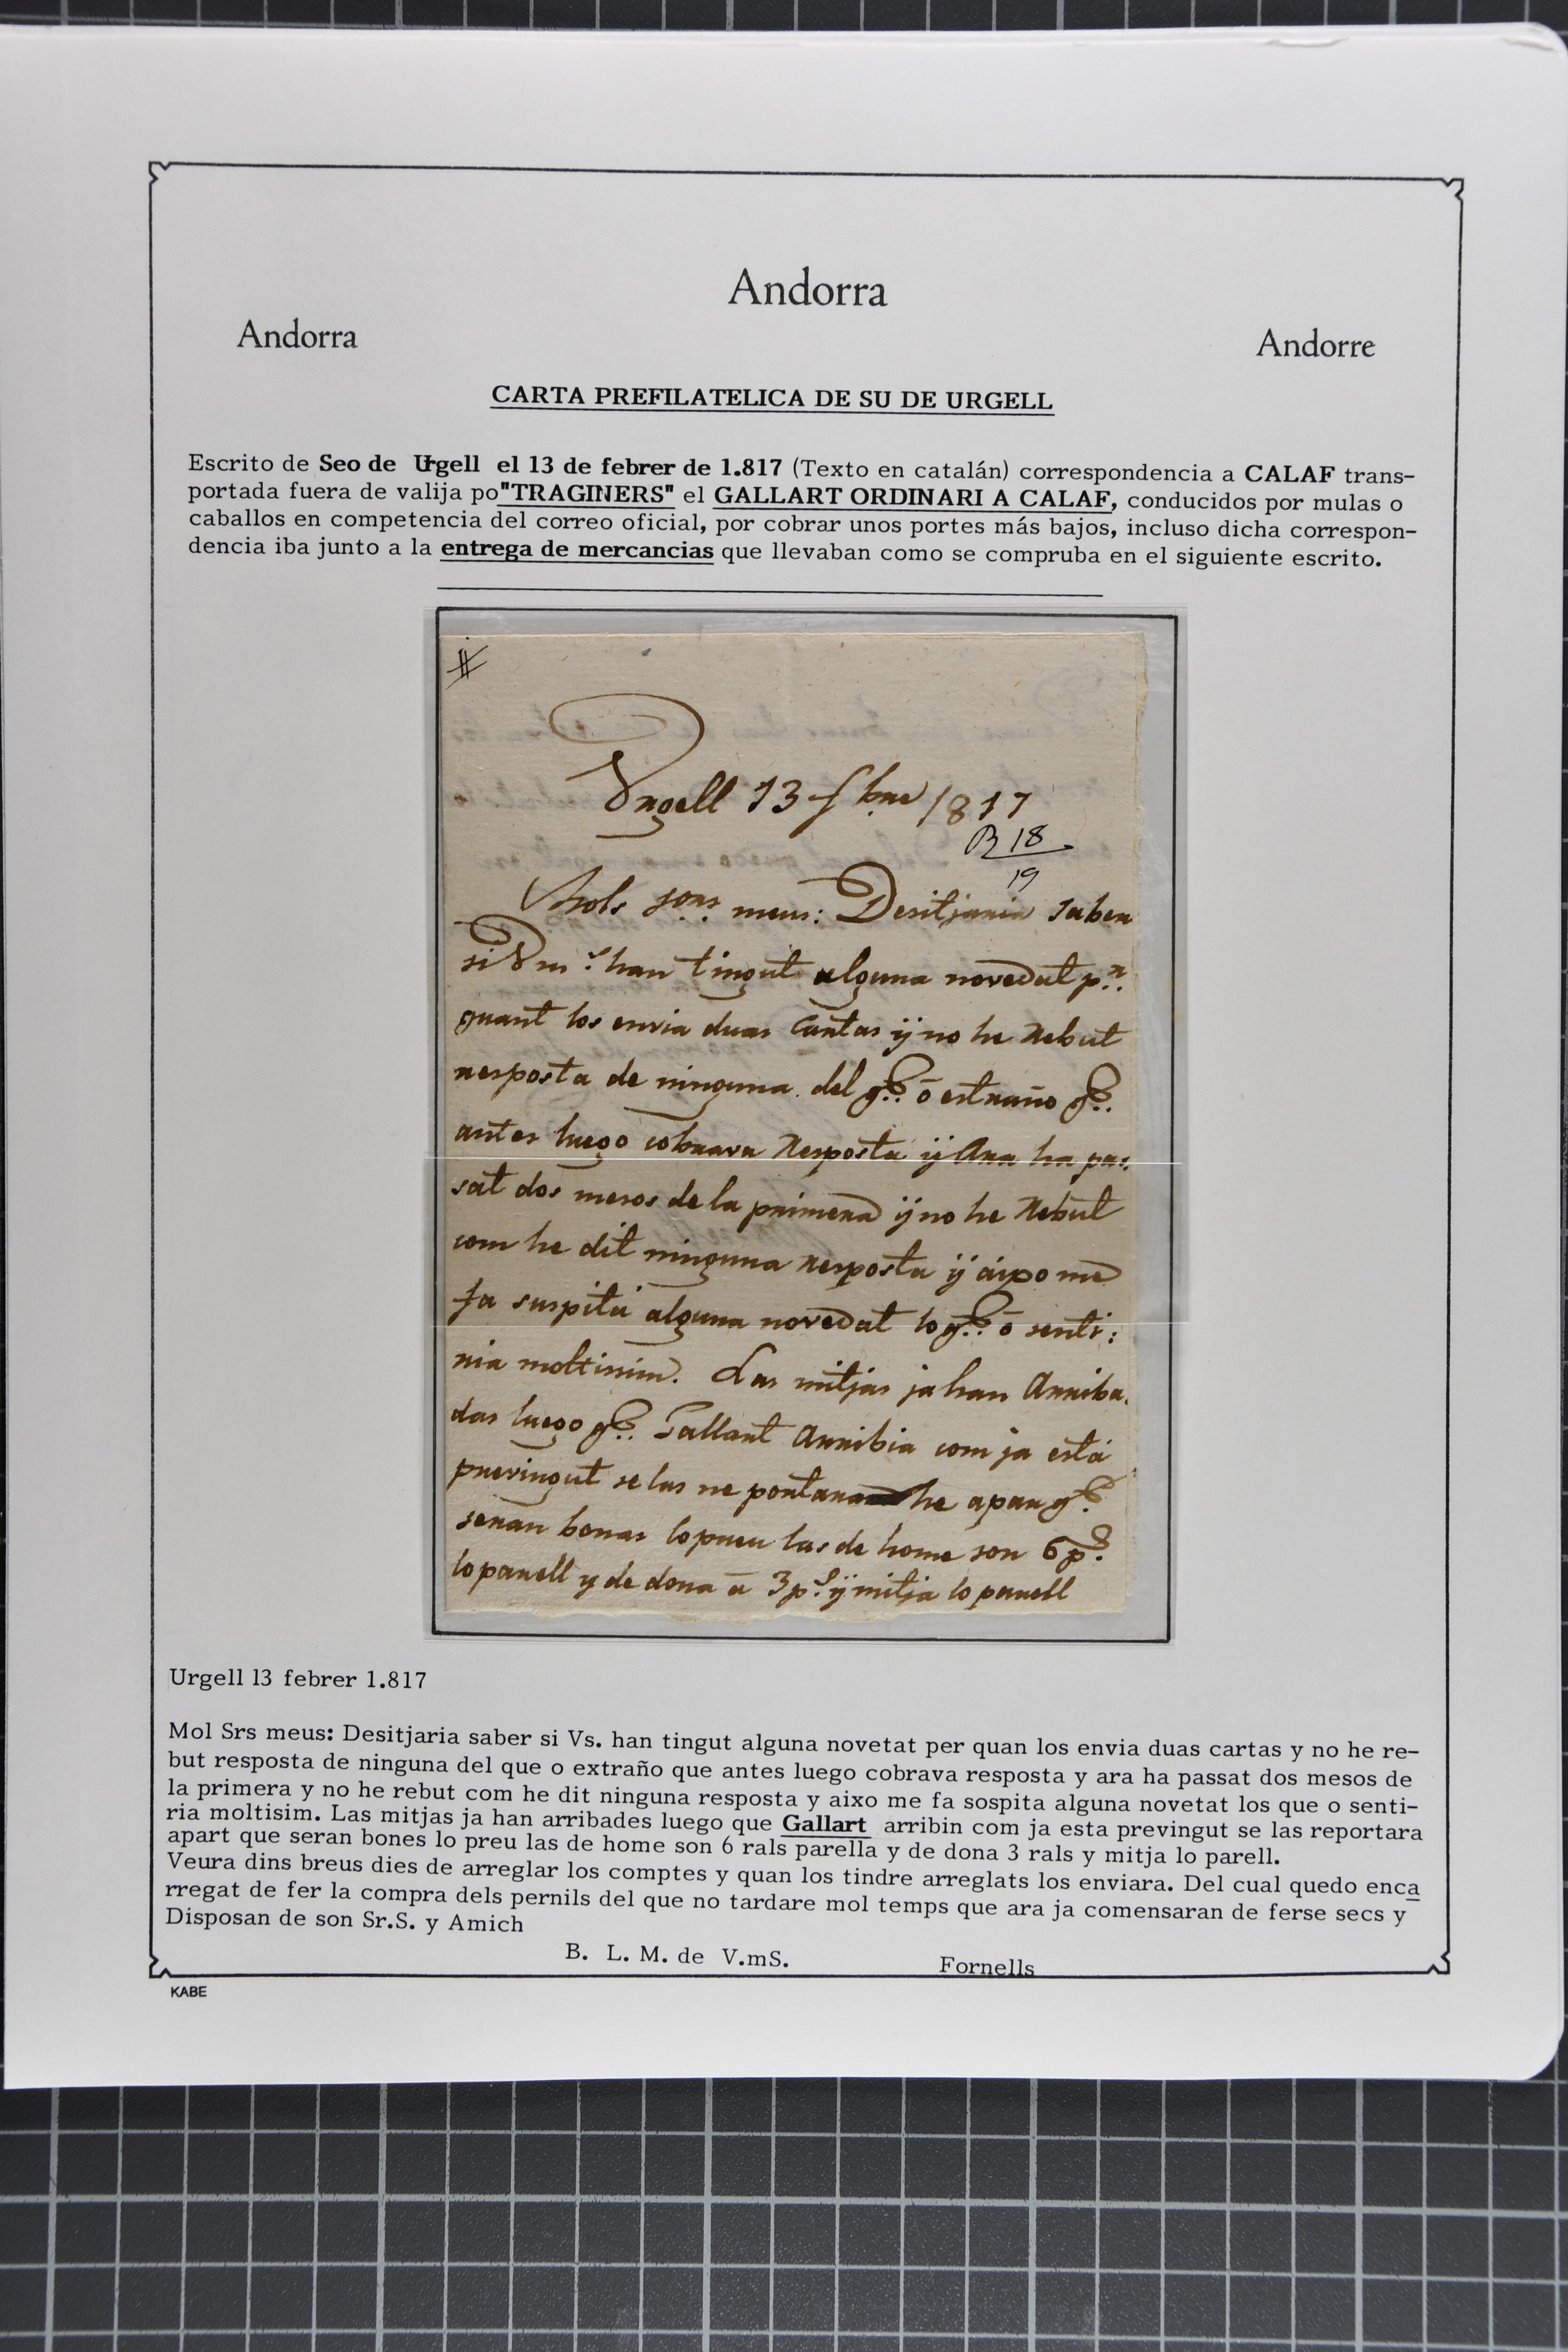 Andorra
Andorra
Andorre
CARTA PREFILATELICA DE SU DE URGELL
Escrito de Seo de Urgell el 13 de febrer de 1.817 (Texto en catalán) correspondencia a CALAF trans-
portada fuera de valija po"TRAGINERS" el GALLART ORDINARI A CALAF, conducidos por mulas o
caballos en competencia del correo oficial, por cobrar unos portes más bajos, incluso dicha correspon-
dencia iba junto a la entrega de mercancias que llevaban como se compruba en el siguiente escrito.
Urgell 13 fbre 1817
R 18
19
Mols sors meus: Desitjaria saber
si Vms han tingut alguna novedat pr.
quant los envia duas cartas ÿ no he rebut
resposta de ninguna del qe. ō estraño qe.
antes luego cobrava resposta ÿ Ara ha pas:
sat dos mesos de la primera ÿ no he rebut
com he dit ninguna resposta ÿ aixo me
fa suspitá alguna novedat lo qe. ō senti:
ria moltissim. Las mitjas ja han Arriba:
das luego qe. Gallart Arribia com ja está
previngut se las ne portara he apar qe.
seran bonas lo preu las de home son 6 ps.
lo parell y de dona ā 3 ps. ÿ mitja lo parell
Urgell 13 febrer 1.817
Mol Srs meus: Desitjaria saber si Vs. han tingut alguna novetat per quan los envia duas cartas y no he re-
but resposta de ninguna del que o extraño que antes luego cobrava resposta y ara ha passat dos mesos de
la primera y no he rebut com he dit ninguna resposta y aixo me fa sospita alguna novetat los que o senti-
ria moltisim. Las mitjas ja han arribades luego que Gallart arribin com ja esta previngut se las reportara
apart que seran bones lo preu las de home son 6 rals parella y de dona 3 rals y mitja lo parell.
Veura dins breus dies de arreglar los comptes y quan los tindre arreglats los enviara. Del cual quedo enca
rregat de fer la compra dels pernils del que no tardare mol temps que ara ja comensaran de ferse secs y
Disposan de son Sr.S. y Amich
B. L. M. de V.mS. Fornells
KABE